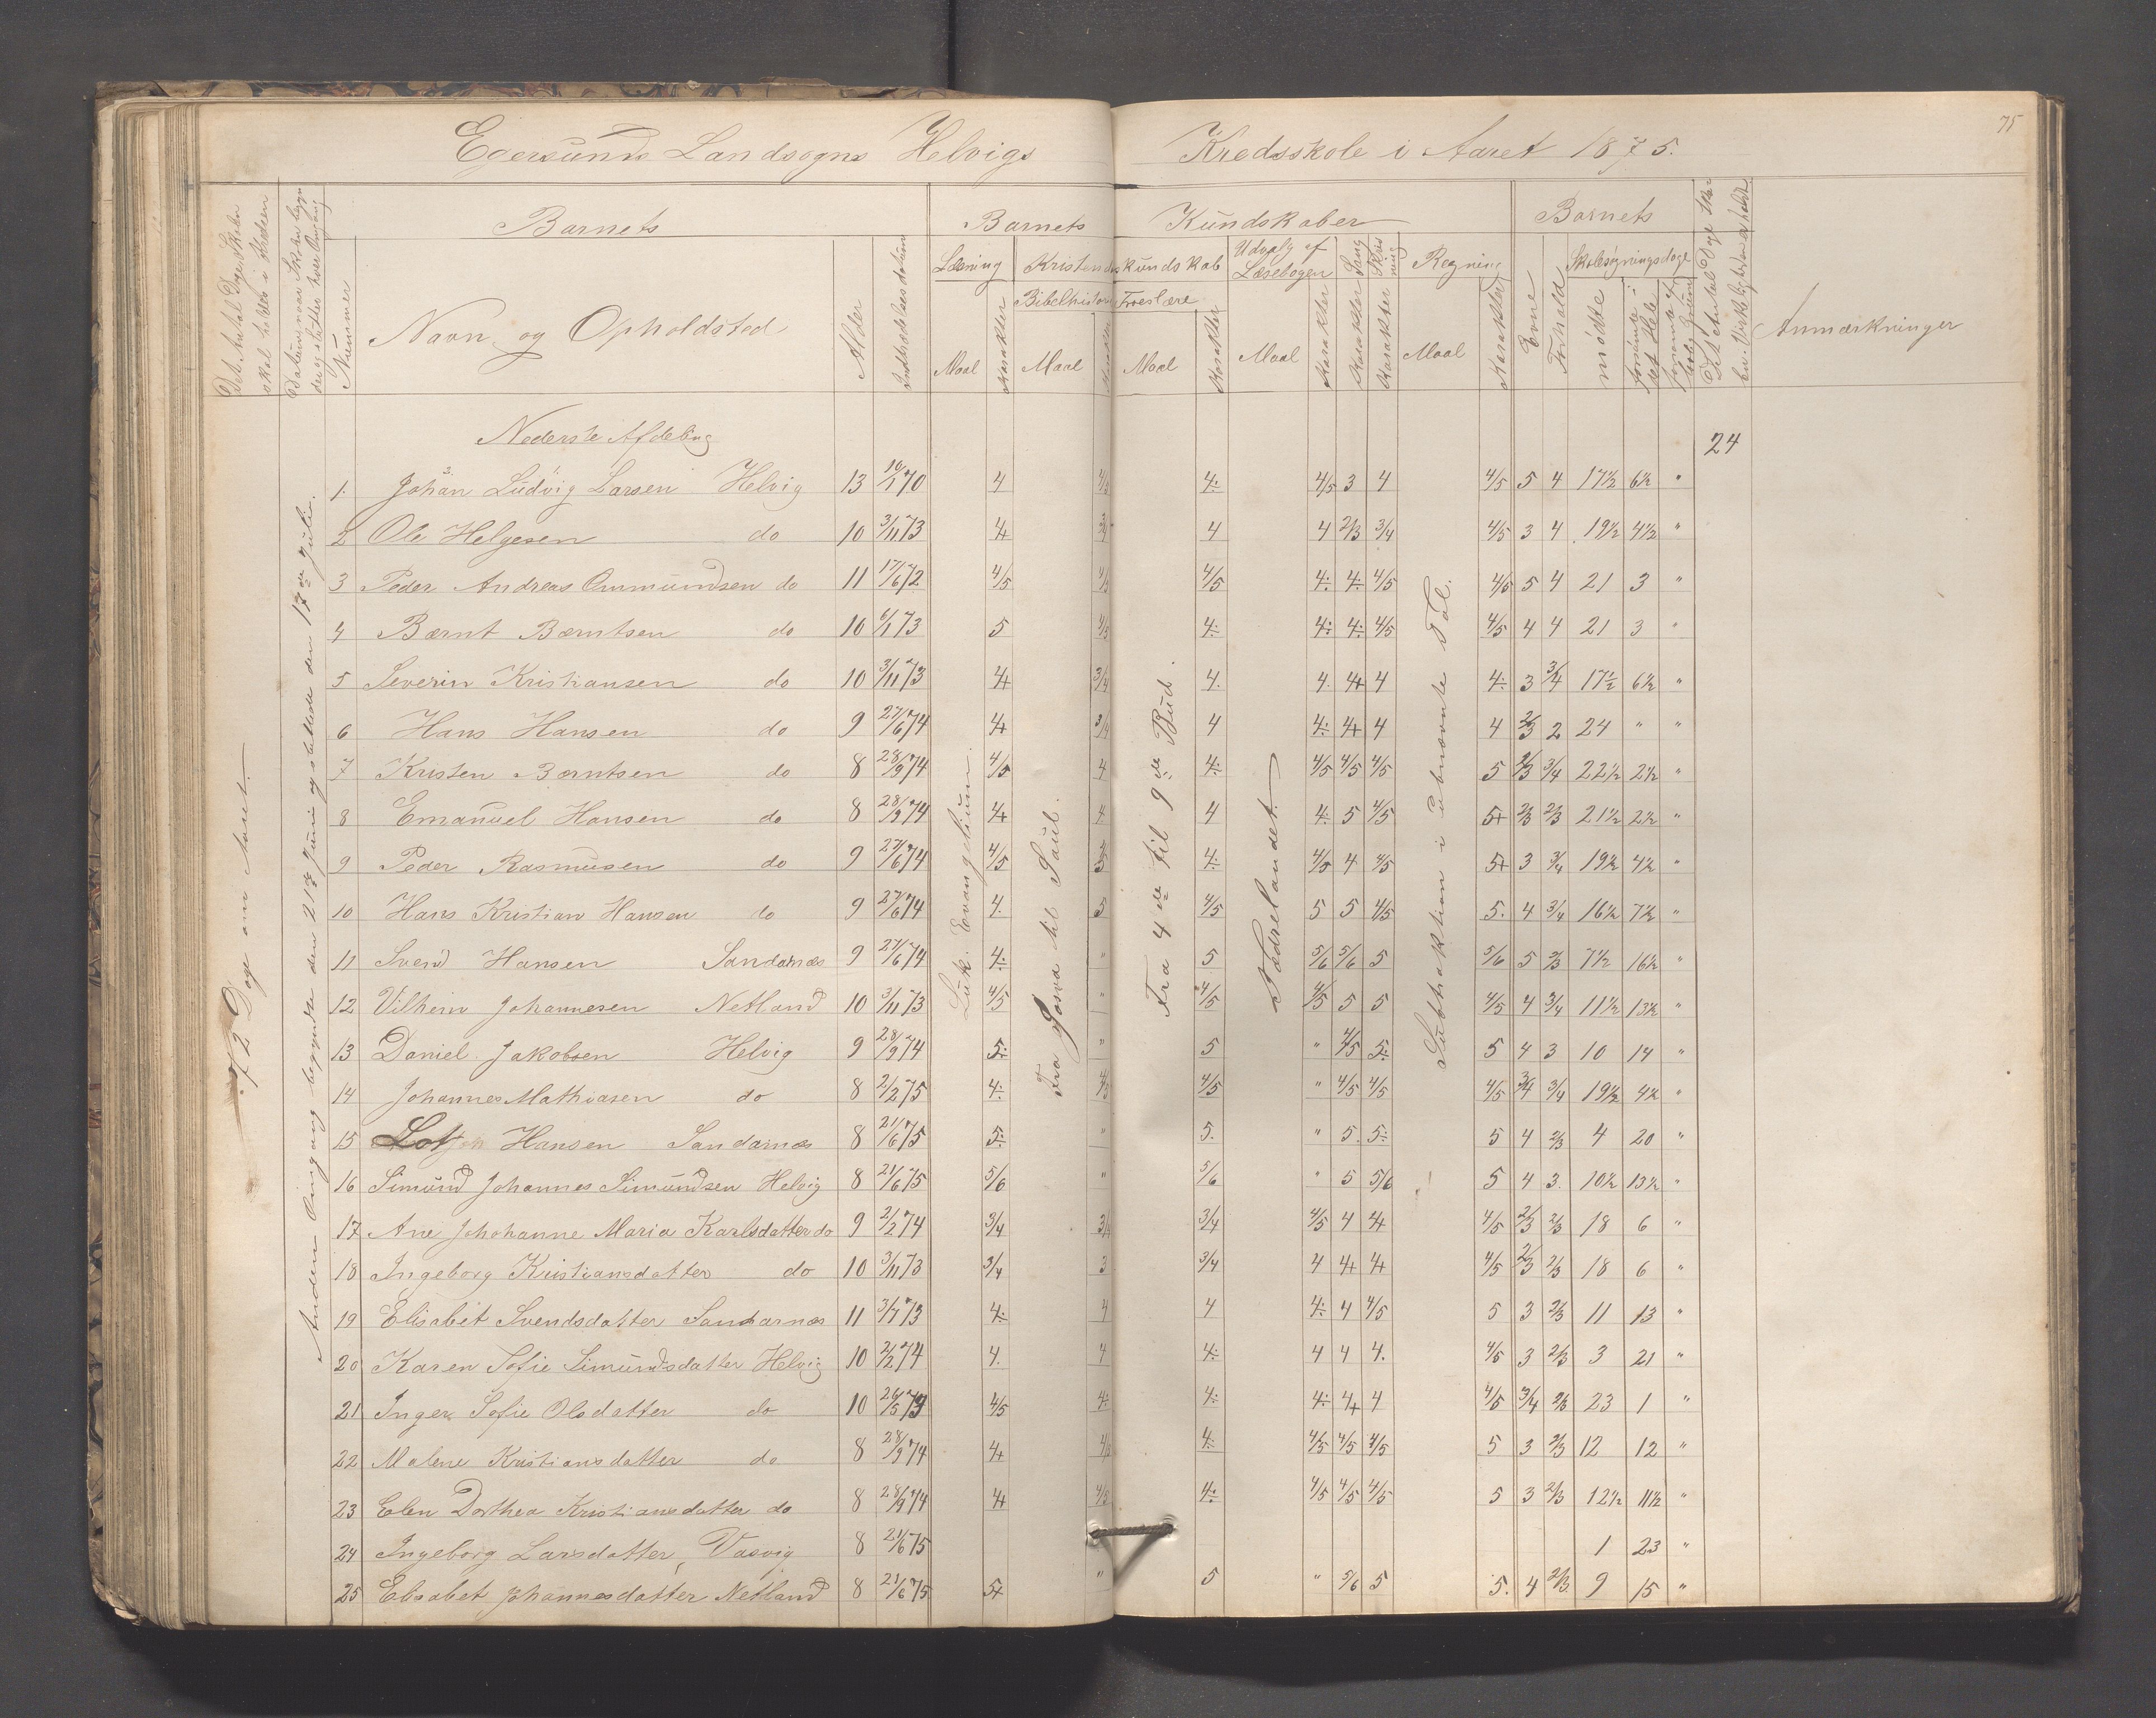 75
Egersunds Landsogns Helvigs Kredsskole i Aaret 1875.
Det Antal Dage Skolen skal holdes i Kredsen
Datum naar Skolen begynder og slutter hver Omgang
Nummer
Barnets
Navn og Opholdsted
Alder
Indtrædelsesdatum
Barnets Kundskaber
Læsning
Maal
Karakter
Kristendomskundskab
Bibelhistorie
Maal
Karakter
Troeslære
Maal
Karakter
Udvalg af Læsebogen
Maal
Karakter
Sang
Karakter
Skrivning
Karakter
Regning
Maal
Karakter
Barnets
Evne
Forhold
Skolesøgningsdage
mødte
forsømte i det Hele
forsømte af lovlig Grund
Det Antal Dage Skolen i Virkeligheden er holdt
Anmærkninger
Nederste Afdeling
24
72 Dage om Aaret.
Anden Omgang begyndte den 21de Juni og sluttede den 17de Juli.
Luk. Evangelium.
Fra Josva til Saul.
Fra 4de til 9de Bud.
Fædrelandet.
Subtraktion i ubenævnte Tal.
1. Johan Ludvig Larsen Helvig 13 10/1 70 4 4/5 4÷ 4/5 3 4 4/5 5 4 17½ 6½ "
2 Ole Helgesen do 10 3/11 73 4+ 3/4 4 4 2/3 3/4 4/5 3 4 19½ 4½ "
3 Peder Andreas Ommundsen do 11 17/6 72 4/5 4/5 4/5 4÷ 4÷ 4/5 4/5 5 4 21 3 "
4 Bærnt Bærntsen do 10 6/1 73 5 4/5 4÷ 4÷ 4÷ 4/5 4/5 4 4 21 3 "
5 Severin Kristiansen do 10 3/11 73 4+ 3/4 4. 4. 4+ 4 4÷ 3 3/4 17½ 6½ "
6 Hans Hansen do 9 27/6 74 4+ 3/4 4 4÷ 4+ 4 4 2/3 2 24 " "
7 Kristen Bærntsen do 8 28/9 74 4/5 4 4÷ 4/5 4/5 4/5 5 2/3 3/4 22½ 2½ "
8 Emanuel Hansen do 8 28/9 74 4+ 4 4 4÷ 5 4/5 5+ 2/3 2/3 21½ 2½ "
9 Peder Rasmusen do 9 27/6 74 4/5 4/5 4÷ 4/5 4 4/5 5+ 3 3/4 19½ 4½ "
10 Hans Kristian Hansen do 9 27/6 74 4. 5 4/5 5 5 4/5 5. 4 3/4 16½ 7½ "
11 Svend Hansen Sandarnæs 9 27/6 74 4÷ " 5 5/6 5/6 5 5/6 5 2/3 7½ 16½ "
12 Vilhem Johannesen Netland 10 3/11 73 4/5 " 4/5 4/5 5 5 4/5 4 3/4 11½ 13½ "
13 Daniel Jakobsen Helvig 9 28/9 74 5÷ " 5 " 4/5 5÷ 5 4 3 10 14 "
14 Johannes Mathiasen do 8 2/2 75 4÷ 4/5 4/5 " 4/5 4/5 4/5 3/4 3/4 19½ 4½ "
15 Lot Hansen Sandarnæs 8 21/6 75 5÷ " 5. " 5. 5÷ 5 4 2/3 4 20 "
16 Simund Johannes Simundsen Helvig 8 21/6 75 5/6 " 5/6 " 5 5/6 5 4 3. 10½ 13½ "
17 Ane Johohanne Maria Karlsdatter do 9 2/2 74 3/4 3/4 3/4 4/5 4 4+ 4/5 2/3 2/3 18 6 "
18 Ingeborg Kristiansdatter do 10 3/11 73 3/4 3 3/4 4 4+ 4+ 4/5 2/3 2/3 18 6 "
19 Elisabet Svendsdatter Sandarnæs 11 3/7 73 4÷ 4 4 4÷ 4 4/5 5 3 2/3 11 13 "
20 Karen Sofie Simundsdatter Helvig 10 2/2 74 4. 4 4÷ 4 4 4. 4/5 3 2/3 3 21 "
21 Inger Sofie Olsdatter do 10 26/5 73 4/5 4÷ 4÷ 4÷ 4+ 4 4/5 3/4 2/3 23 1 "
22 Malene Kristiansdatter do 8 28/9 74 4+ 4/5 4÷ 4/5 4/5 4/5 5 3 2/3 12 12 "
23 Elen Dorthea Kristiansdatter do 8 28/9 74 4+ 4/5 4÷ 4/5 4/5 4/5 5 3 2/3 12½ 11½ "
24 Ingeborg Larsdatter, Vasvig 8 21/6 75 1 23 "
25 Elisabet Johannesdatter Netland 8 21/6 75 5+ " 5 " 5/6 5 5. 4 2/3 9 15 "